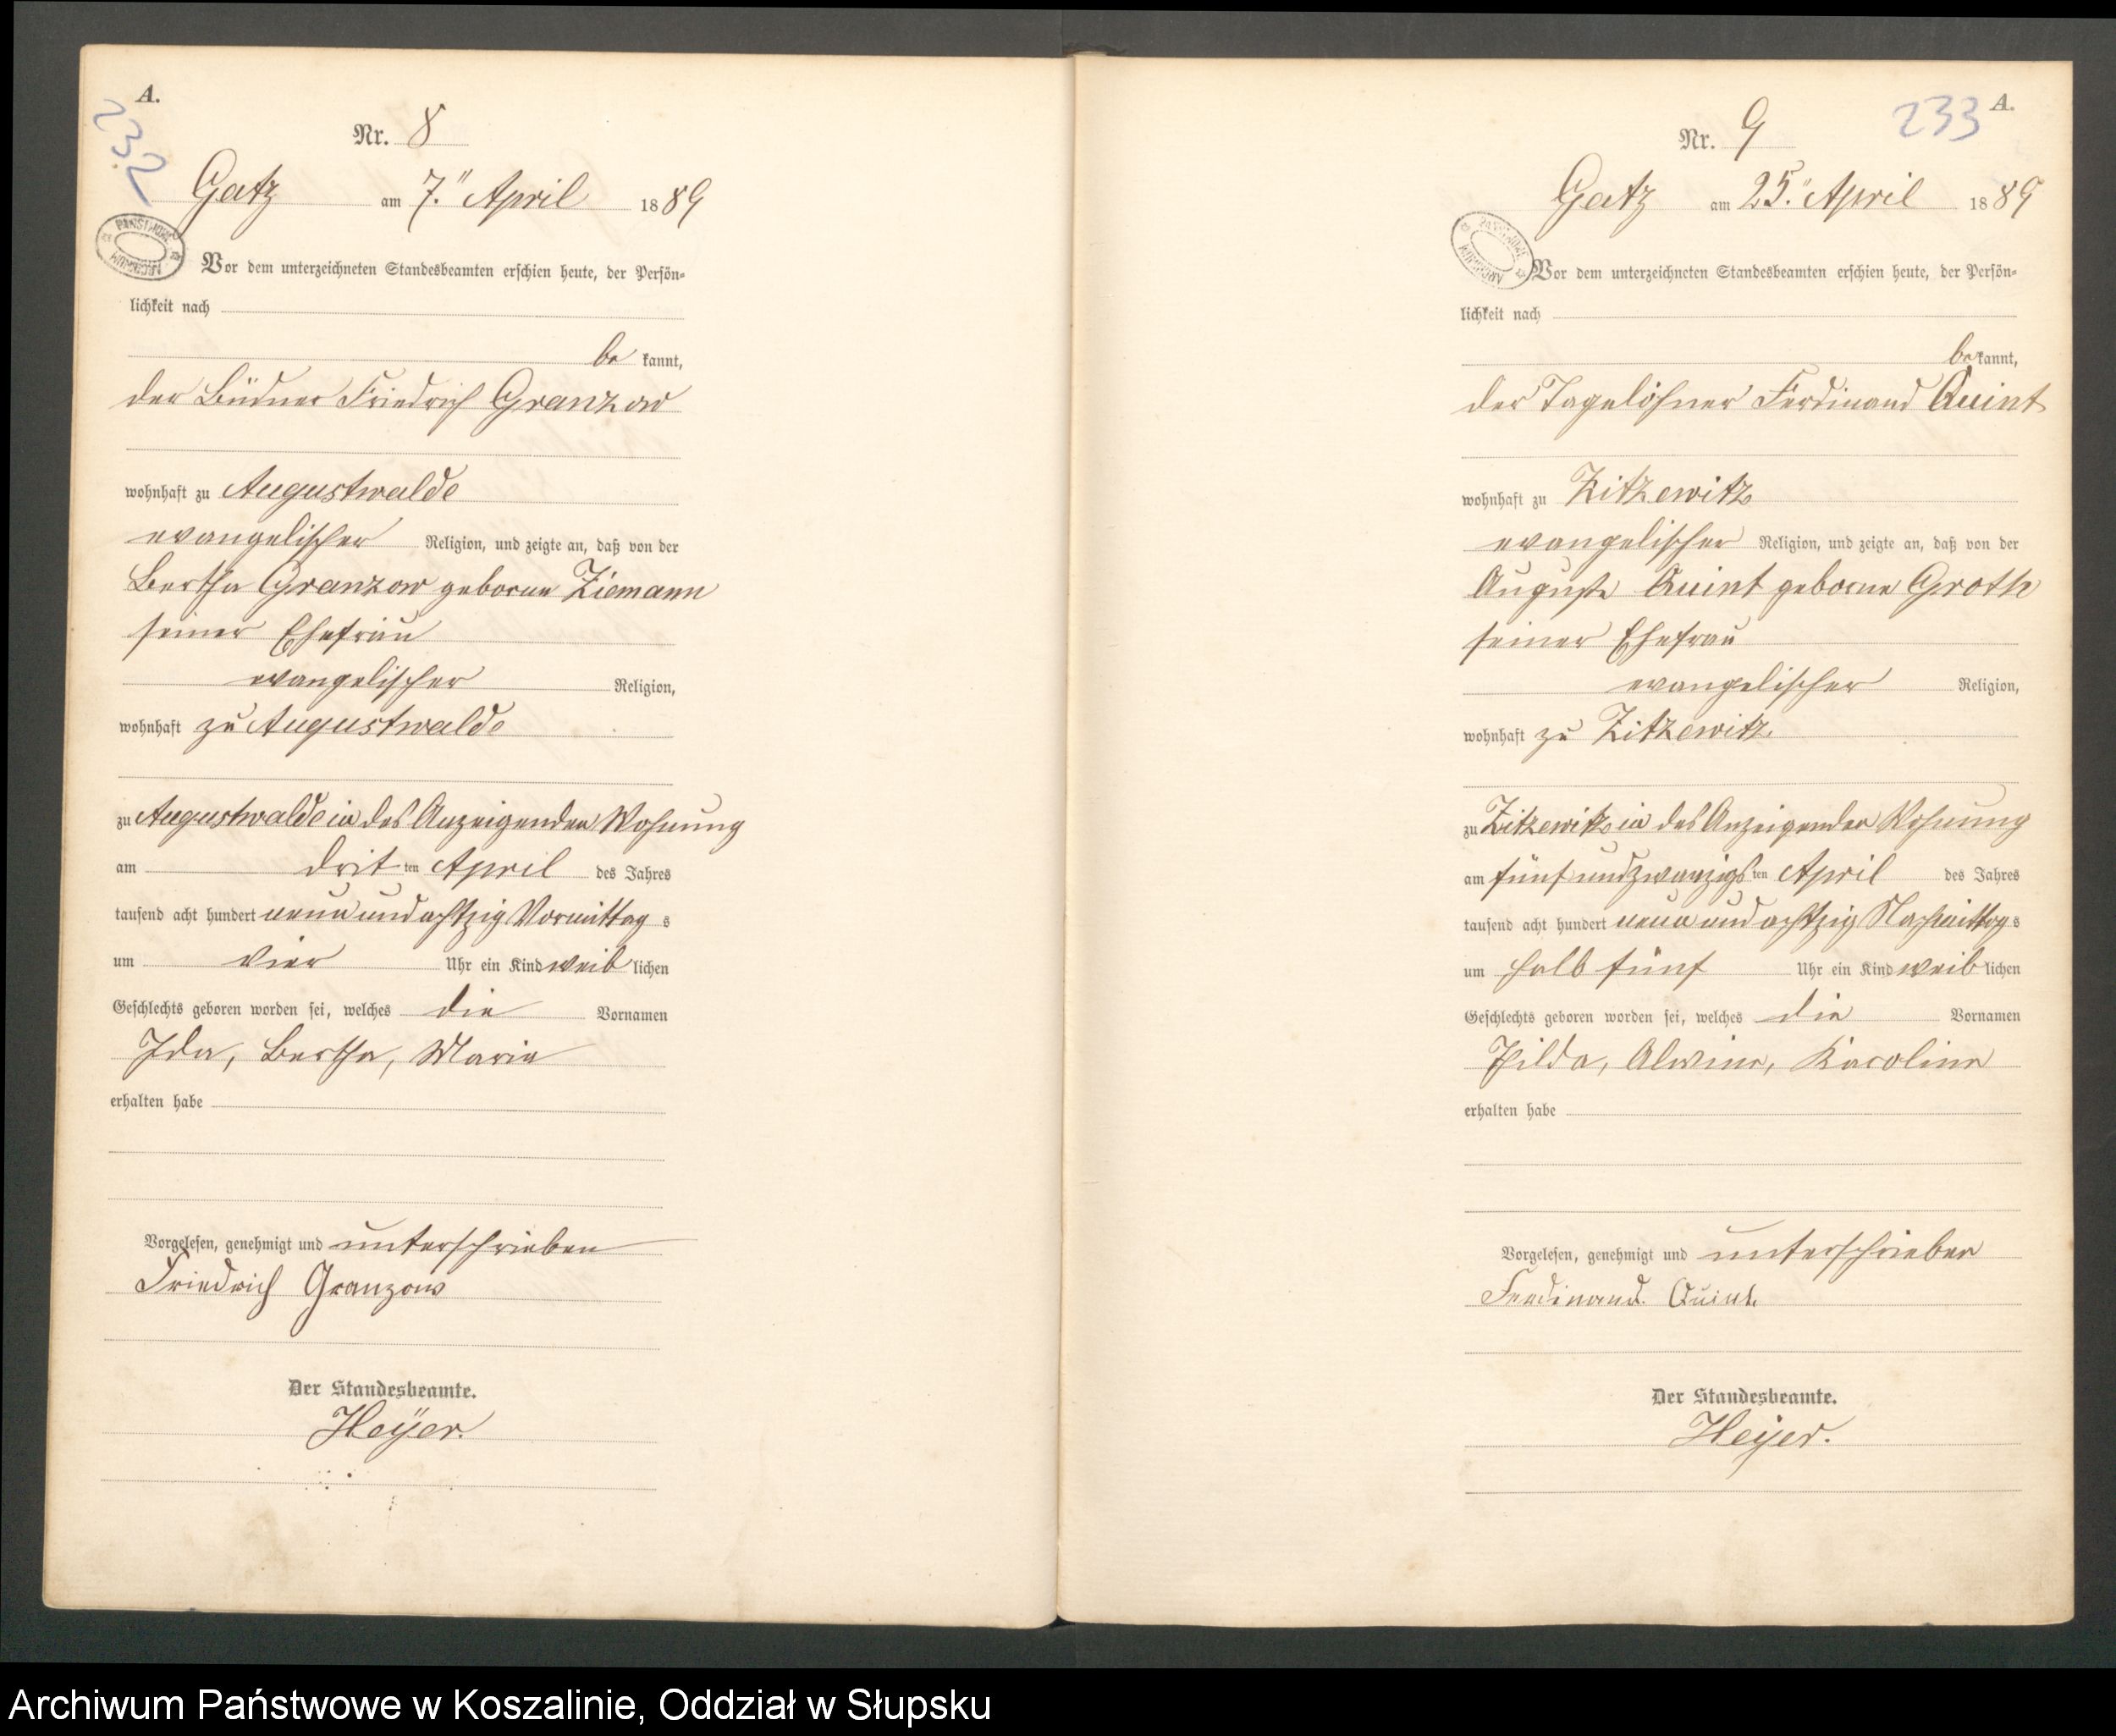 A.
232
Nr. 8
Gatz am 7." April 1889
PAŃSTWOWE ARCHIWUM
Vor dem unterzeichneten Standesbeamten erschien heute, der Persön-
lichkeit nach
be kannt,
der Büdner Friedrich Granzow
wohnhaft zu Augustwalde
evangelischer Religion, und zeigte an, daß von der
Bertha Granzow geborne Ziemann
seiner Ehefrau
evangelischer Religion,
wohnhaft zu Augustwalde
zu Augustwalde in des Anzeigenden Wohnung
am drit ten April des Jahres
tausend acht hundert neun und achtzig Vormittag s
um vier Uhr ein Kind weib lichen
Geschlechts geboren worden sei, welches die Vornamen
Ida, Bertha, Marie
erhalten habe
Vorgelesen, genehmigt und unterschrieben
Friedrich Granzow
Der Standesbeamte.
Heÿer.
233
A.
Nr. 9
Gatz am 25." April 1889
PAŃSTWOWE ARCHIWUM
Vor dem unterzeichneten Standesbeamten erschien heute, der Persön-
lichkeit nach
be kannt,
der Tagelöhner Ferdinand Quint
wohnhaft zu Zitzewitz
evangelischer Religion, und zeigte an, daß von der
Auguste Quint geborne Groth
seiner Ehefrau
evangelischer Religion,
wohnhaft zu Zitzewitz
zu Zitzewitz in des Anzeigenden Wohnung
am fünf und zwanzigs ten April des Jahres
tausend acht hundert neun und achtzig Nachmittag s
um halb fünf Uhr ein Kind weib lichen
Geschlechts geboren worden sei, welches die Vornamen
Hilda, Alwine, Karoline
erhalten habe
Vorgelesen, genehmigt und unterschrieben
Ferdinand. Quint.
Der Standesbeamte.
Heÿer.
Archiwum Państwowe w Koszalinie, Oddział w Słupsku